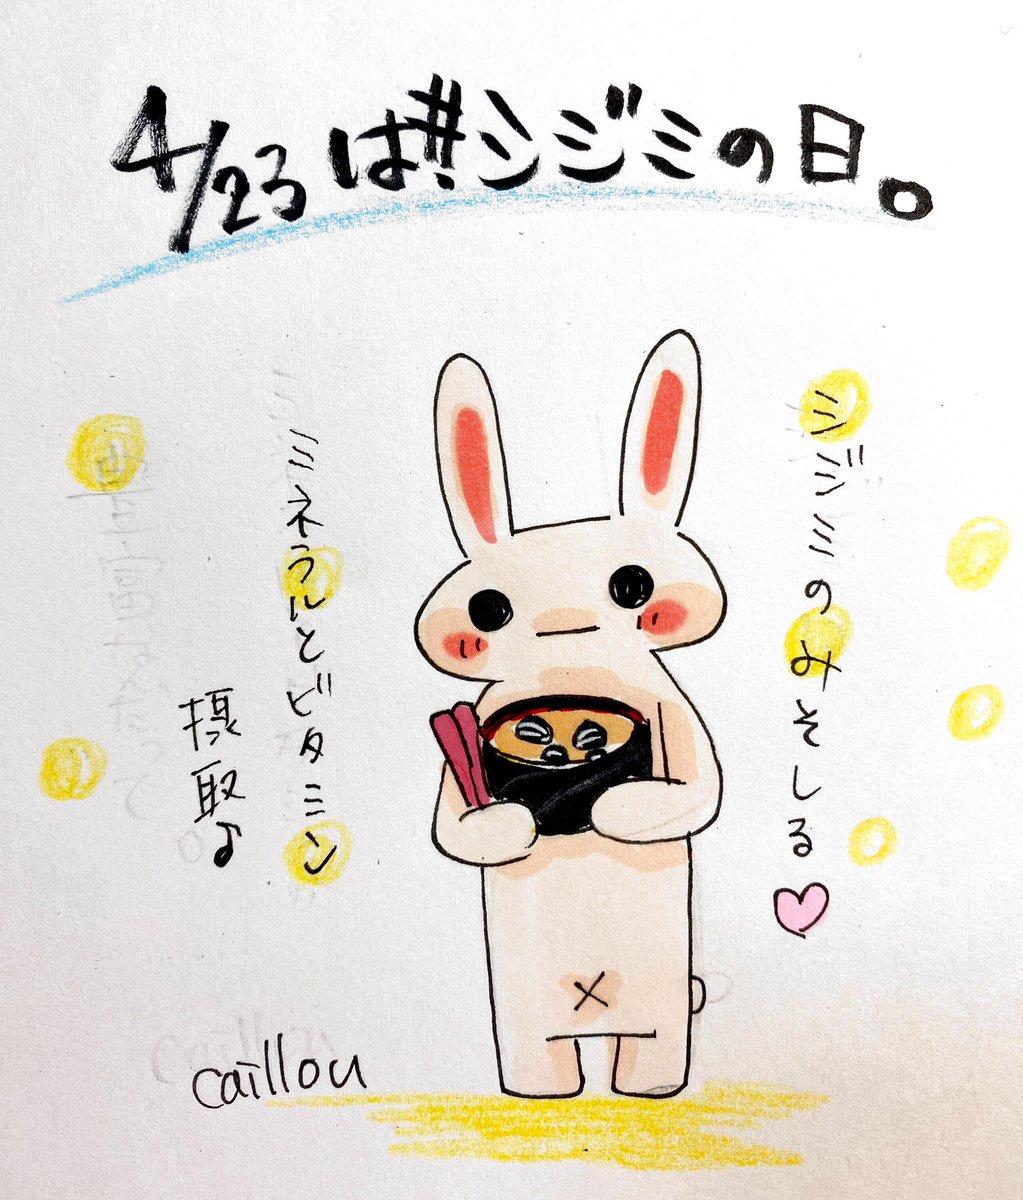 4/23は#シジミの日。
シジミのみそしる♡
ミネラルとビタミン
摂取♪
caillou